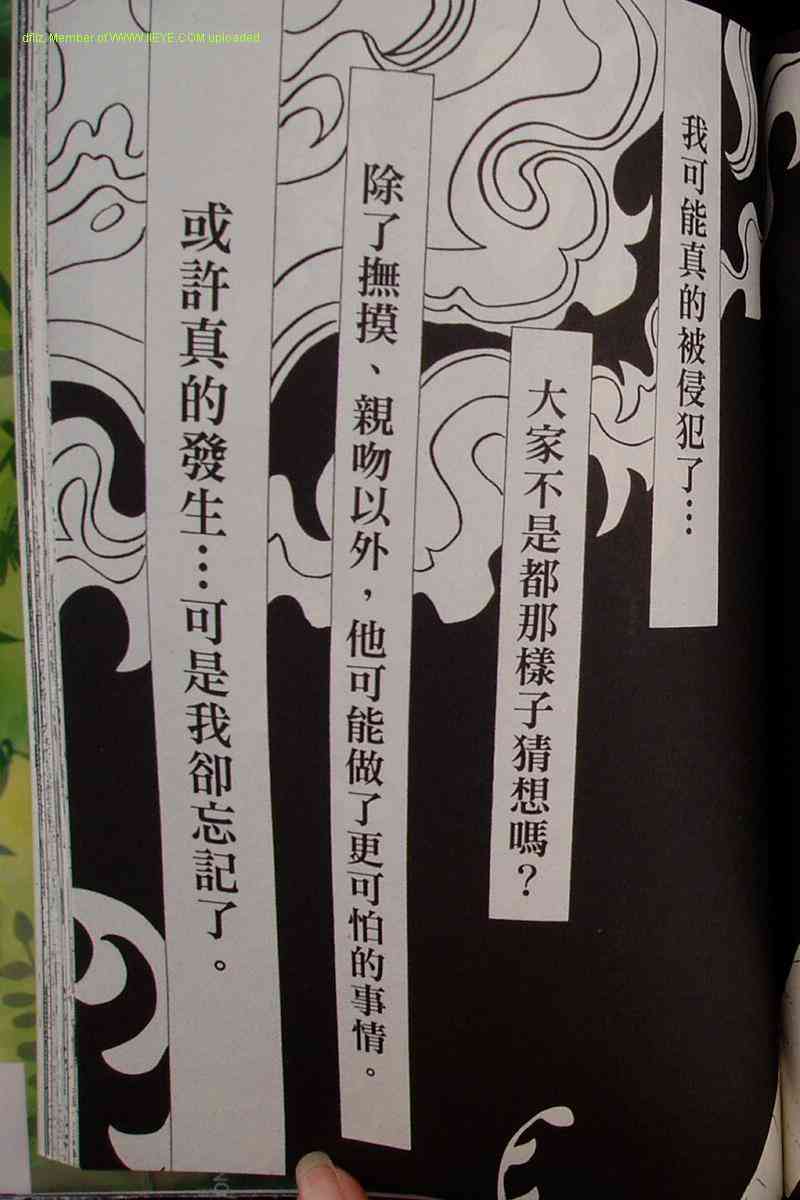 dfliz, Member of WWW.IIEYE.COM uploaded
我可能真的被侵犯了…
大家不是都那樣子猜想嗎？
除了撫摸、親吻以外，他可能做了更可怕的事情。
或許真的發生…可是我卻忘記了。